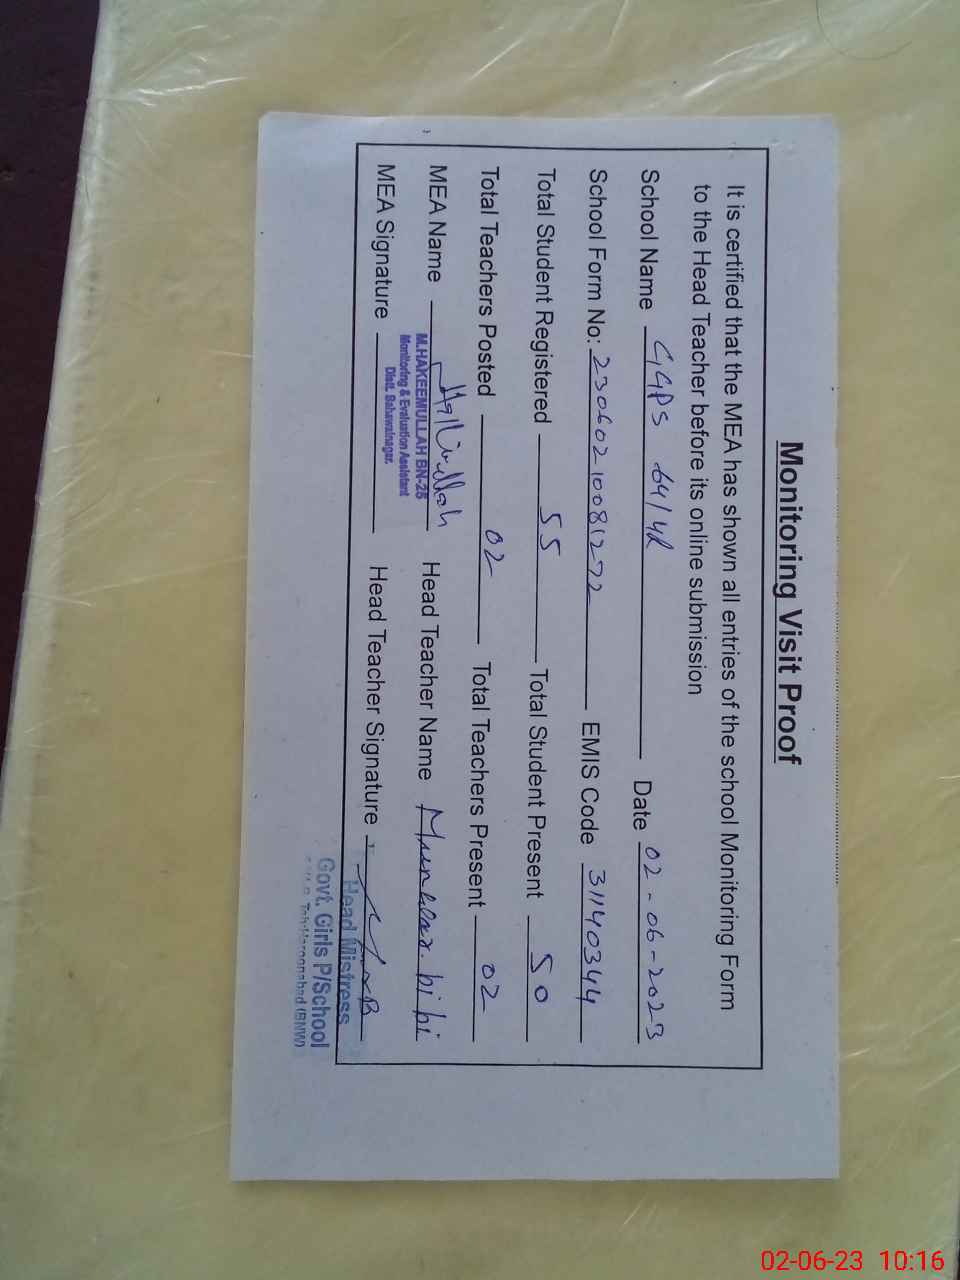 Monitoring Visit Proof
It is certified that the MEA has shown all entries of the school Monitoring Form
to the Head Teacher before its online submission
School Name GGPS 64/4R Date 02-06-2023
School Form No: 23060210081272 EMIS Code 31140344
Total Student Registered 55 Total Student Present 50
Total Teachers Posted 02 Total Teachers Present 02
MEA Name Head Teacher Name bibi
M.HAKEEMULLAH BN-25
Monitoring & Evaluation Assistant
Distt. Bahawalnagar.
MEA Signature Head Teacher Signature
Head Mistress
Govt. Girls P/School
Teh: Haroonabad (BNW)
02-06-23 10:16